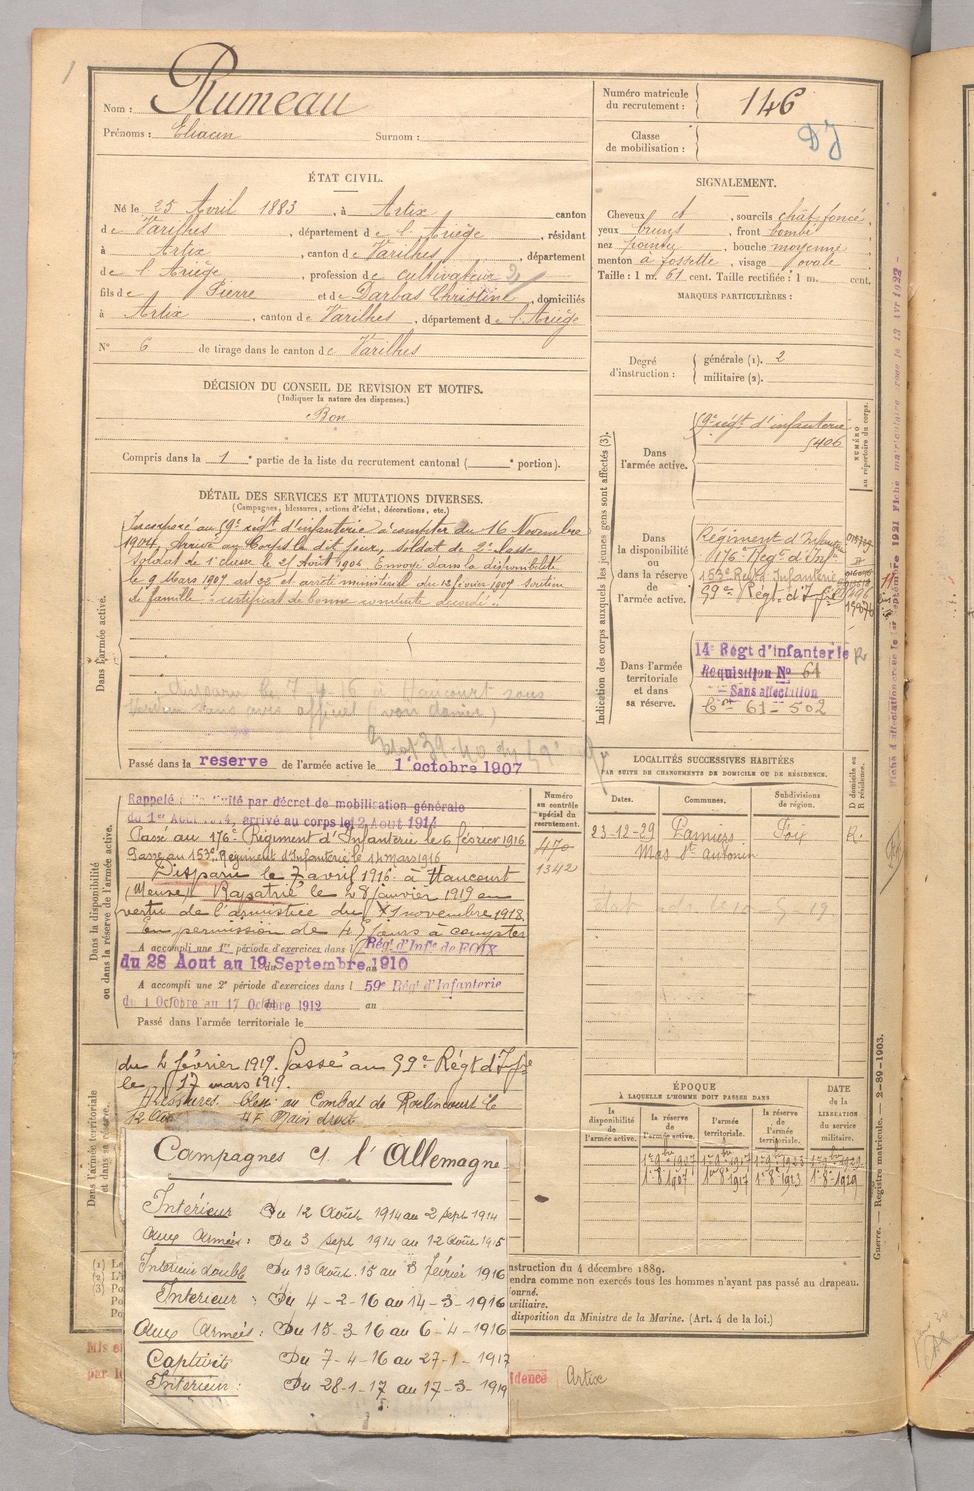 1
Nom : Rumeau
Prénoms : Eliacin Surnom :
Numéro matricule du recrutement : 146
Classe de mobilisation :
ÉTAT CIVIL.
Né le 25 Avril 1883, à Artix canton
de Varilhes, département de l'Ariège, résidant
à Artix, canton de Varilhes, département
de l'Ariège, profession de cultivateur 2
fils de Pierre et de Darbas Christine, domiciliés
à Artix, canton de Varilhes, département de l'Ariège
N° 6 de tirage dans le canton de Varilhes
SIGNALEMENT.
Cheveux et, sourcils chât foncé
yeux bruns, front bombé
nez pointu, bouche moyenne
menton à fossette, visage ovale
Taille : 1 m. 61 cent. Taille rectifiée : 1 m. cent.
MARQUES PARTICULIÈRES :
Degré d'instruction : générale (1). 2
militaire (2).
DÉCISION DU CONSEIL DE REVISION ET MOTIFS.
(Indiquer la nature des dispenses.)
Bon
Compris dans la 1e partie de la liste du recrutement cantonal ( e portion).
DÉTAIL DES SERVICES ET MUTATIONS DIVERSES.
(Campagnes, blessures, actions d'éclat, décorations, etc.)
Dans l'armée active.
Incorporé au 59e régt d'infanterie à compter du 16 Novembre
1904, arrivé au Corps le dit jour, soldat de 2e classe
Soldat de 1e classe le 21 Août 1906. Envoyé dans la disponibilité
le 9 Mars 1907 art 22 et arrêté ministériel du 13 février 1907 Soutien
de famille - certificat de bonne conduite accordé.
disparu le 7-4-16 à Haucourt sous
Verdun sans avis officiel (voir dossier)
Passé dans la reserve de l'armée active le 1 octobre 1907
Indication des corps auxquels les jeunes gens sont affectés (3).
NUMÉRO au répertoire du corps.
Dans l'armée active.
59e régt d'infanterie
5406
Dans la disponibilité ou dans la réserve de l'armée active.
Régiment d'Infanterie
176e Régt d'Inf.
153e Régt d'Infanterie
59e Régt d'Inf
Dans l'armée territoriale et dans sa réserve.
14e Régt d'infanterie
Requisition N° 61
Sans affectation
61-502
LOCALITÉS SUCCESSIVES HABITÉES
PAR SUITE DE CHANGEMENTS DE DOMICILE OU DE RÉSIDENCE.
Dates. Communes. Subdivisions de région. D domicile ou R résidence.
23-12-29 Pamiers Foix R.
Mas St Antonin
Dans la disponibilité ou dans la réserve de l'armée active.
Numéro au contrôle spécial du recrutement.
470
1342
Rappelé à l'activité par décret de mobilisation générale
du 1er Août 1914, arrivé au corps le 12 Août 1914
Passé au 176e Régiment d'Infanterie le 6 février 1916
Passé au 153e Régiment d'Infanterie le 14 mars 1916
Disparu le 7 avril 1916 à Haucourt
(Meuse) Rapatrié le 28 janvier 1919 en
vertu de l'armistice du XI novembre 1918.
En permission de 45 jours à compter
A accompli une 1re période d'exercices dans l Régt d'Infie de FOIX
du 28 Aout au 19 Septembre 1910
A accompli une 2e période d'exercices dans l 59e Régt d'Infanterie
du 1 Octobre au 17 Octobre 1912
Passé dans l'armée territoriale le
Dans l'armée territoriale et dans sa réserve.
du 2 février 1919. Passé au 59e Régt d'Infie
le 17 mars 1919.
Blessures. blessé au Combat de Roclincourt le
main droite
ÉPOQUE
À LAQUELLE L'HOMME DOIT PASSER DANS
la disponibilité de l'armée active. la réserve de l'armée active. l'armée territoriale. la réserve de l'armée territoriale.
DATE de la LIBÉRATION du service militaire.
Campagnes ct l'Allemagne
Intérieur Du 12 Août 1914 au 2 Sept 1914
Aux Armées : Du 3 Sept 1914 au 12 Août 1915
Intérieur double Du 13 Août 15 au 3 février 1916
Intérieur : Du 4-2-16 au 14-3-1916
Aux Armées : Du 15-3-16 au 6-4-1916
Captivité Du 7-4-16 au 27-1-1917
Intérieur : Du 28-1-17 au 17-3-1919
nstruction du 4 décembre 1889.
endra comme non exercés tous les hommes n'ayant pas passé au drapeau.
ourné.
uxiliaire.
disposition du Ministre de la Marine. (Art. 4 de la loi.)
idence Artix
Guerre. — Registre matricule. — 2-89-1903.